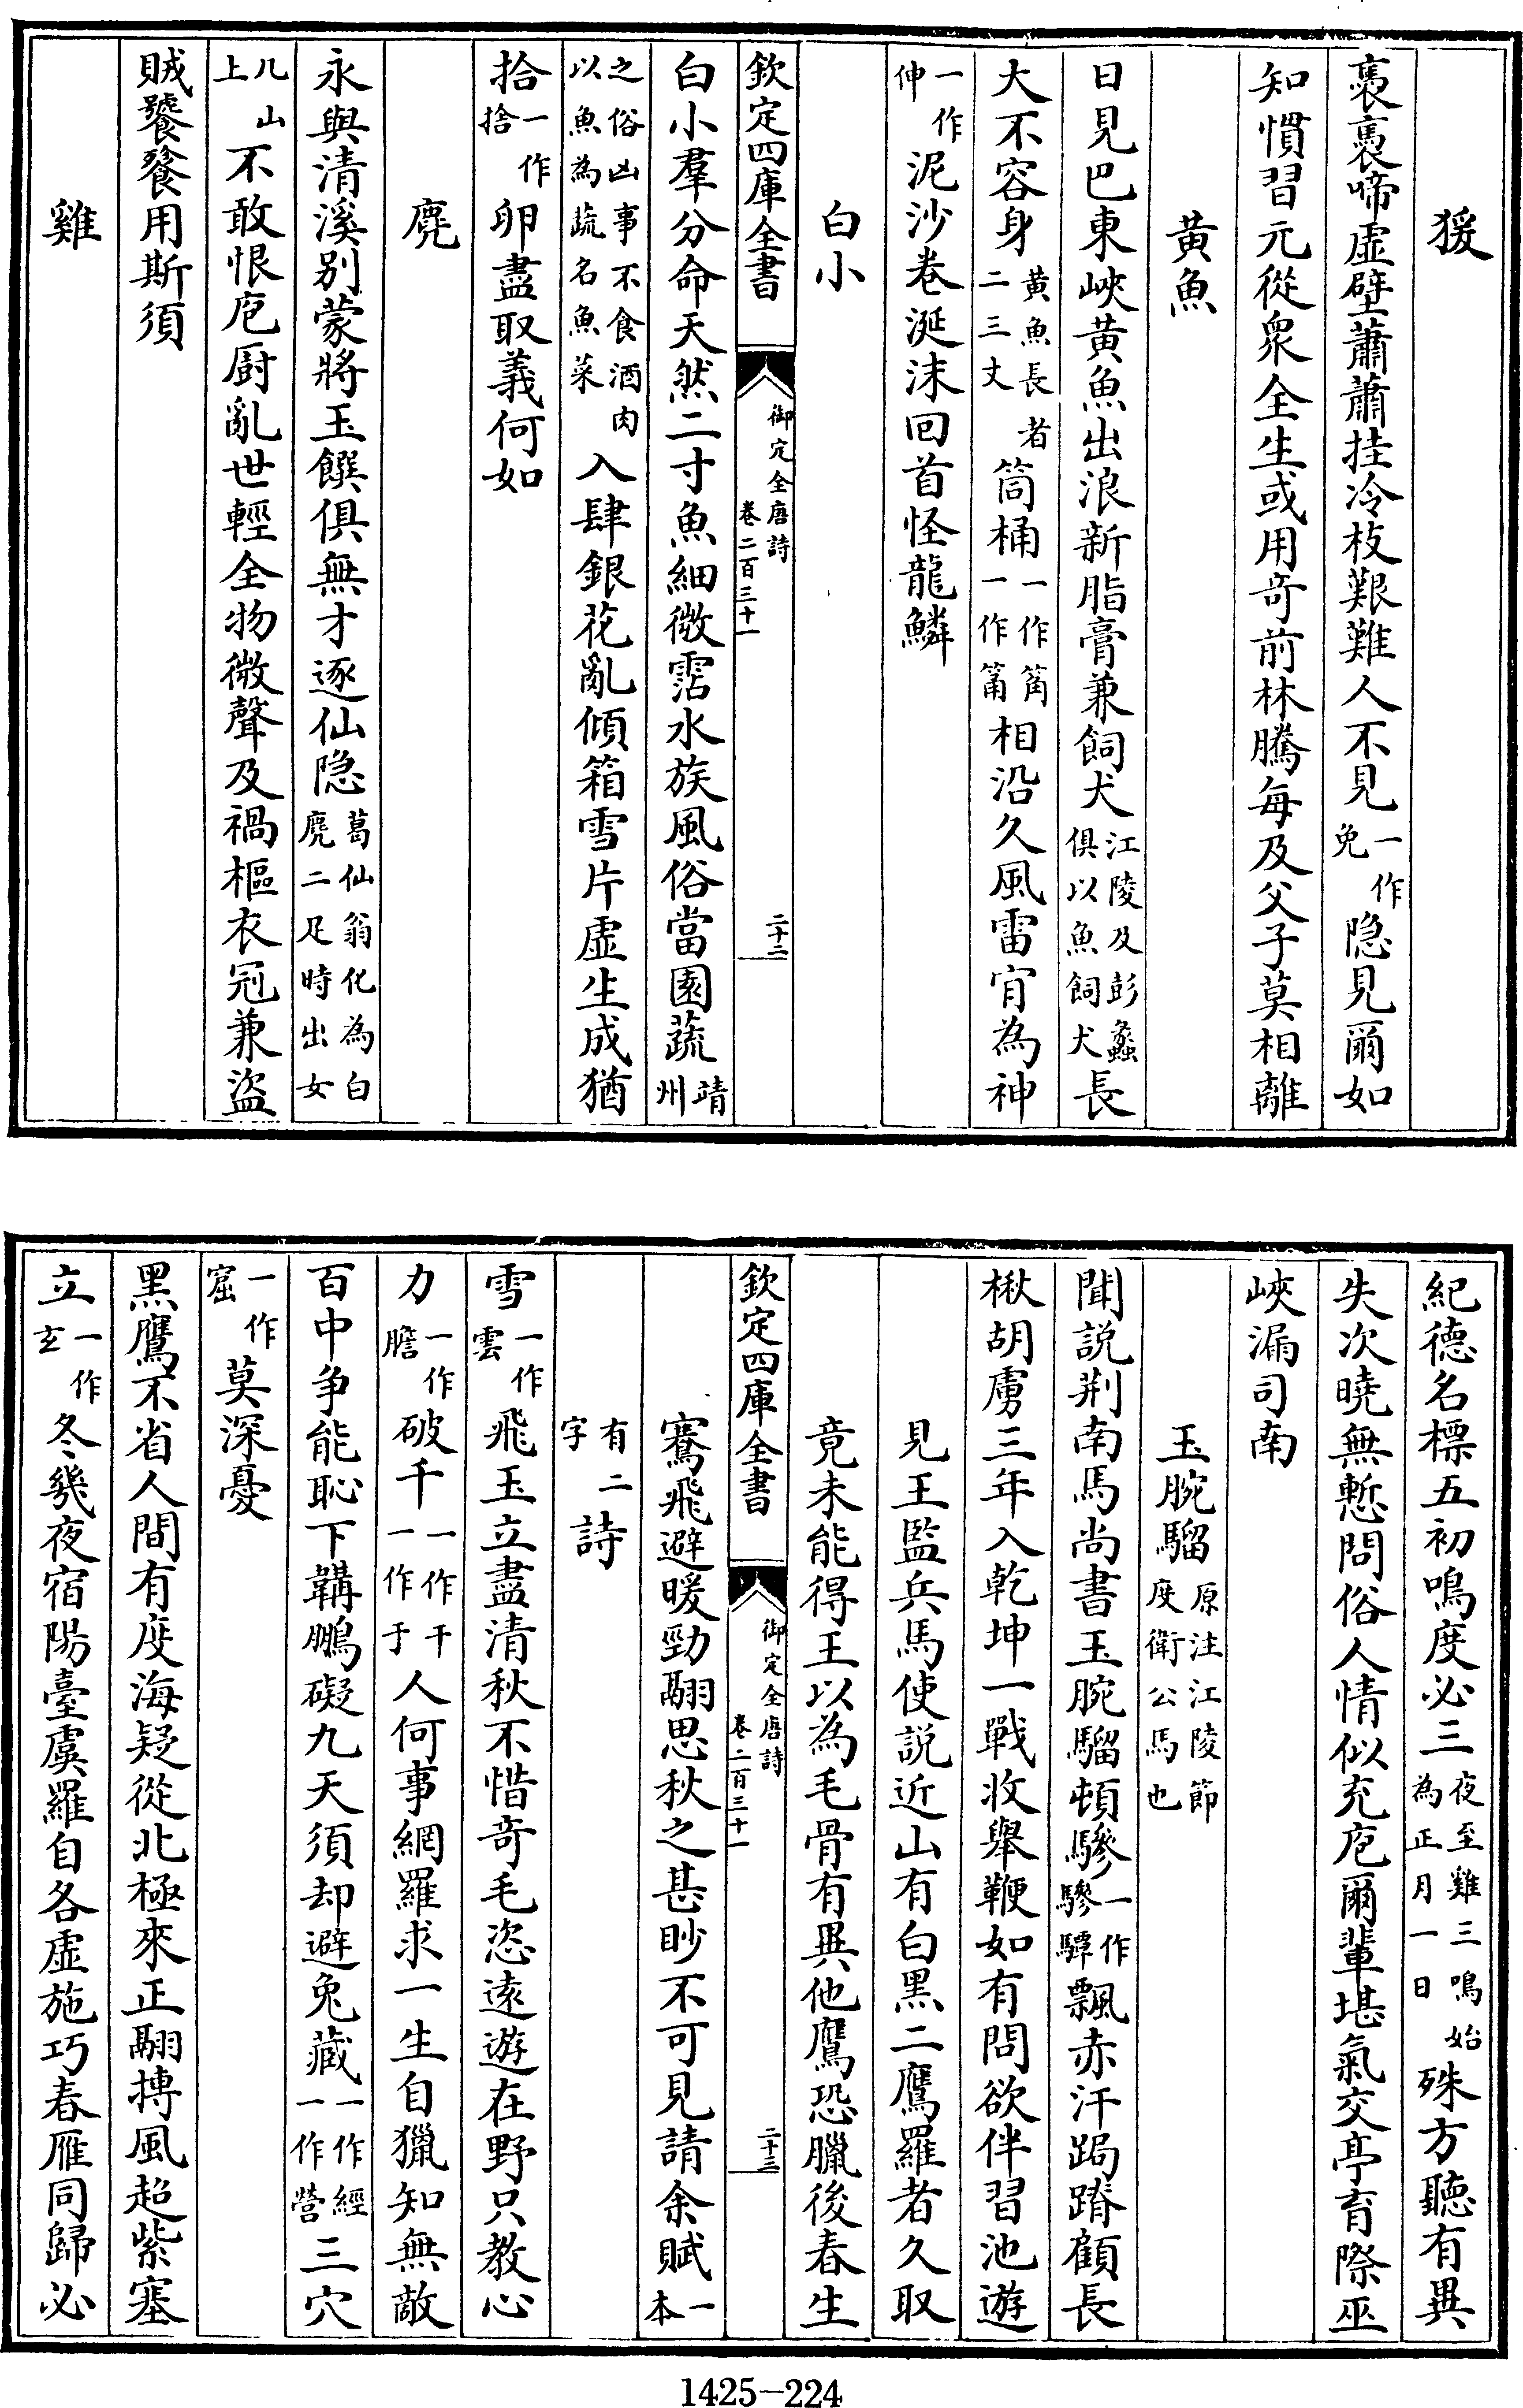 猨
裊裊啼虛壁蕭蕭挂冷枝艱難人不見一作免隐見爾如
知慣習元從衆全生或用奇前林騰每及父子莫相離
黃魚
日見巴東峽黃魚出浪新脂膏兼飼犬江陵及彭蠡俱以魚飼犬長
大不容身黃魚長者二三丈筒桶一作筩一作筩相沿久風雷肯為神
一作伸泥沙卷涎沫回首怪龍鱗
白小
欽定四庫全書 御定全唐詩卷二百三十一 二十二
白小羣分命天然二寸魚細微霑水族風俗當園蔬靖州
之俗凶事不食酒肉以魚為蔬名魚菜入肆銀花亂傾箱雪片虛生成猶
拾一作捨卵盡取義何如
麂
永與清溪别蒙將玉饌俱無才逐仙隐葛仙翁化為白麂二足時出女
几山上不敢恨庖厨亂世輕全物微聲及禍樞衣冠兼盜
賊饕餮用斯須
雞
紀德名標五初鳴度必三夜至雞三鳴始為正月一日殊方聽有異
失次曉無慙問俗人情似充庖爾輩堪氣交亭育際巫
峽漏司南
玉腕騮原注江陵節度衛公馬也
聞說荆南馬尚書玉腕騮頓驂一作驂驔飄赤汗跼蹐顧長
楸胡虜三年入乾坤一戰收舉鞭如有問欲伴習池遊
見王監兵馬使說近山有白黑二鷹羅者久取
竟未能得王以為毛骨有異他鷹恐臘後春生
欽定四庫全書 御定全唐詩卷二百三十一 二十三
騫飛避暖勁翮思秋之甚眇不可見請余賦一本
有二字詩
雪一作雲飛玉立盡清秋不惜奇毛恣遠遊在野只教心
力一作膽破千一作干一作于人何事網羅求一生自獵知無敵
百中争能恥下韝鵬礙九天須却避兔藏一作經一作營三穴
一作窟莫深憂
黑鷹不省人間有度海疑從北極來正翮摶風超紫塞
立一作玄冬幾夜宿陽臺虞羅自各虛施巧春雁同歸必
1425-224